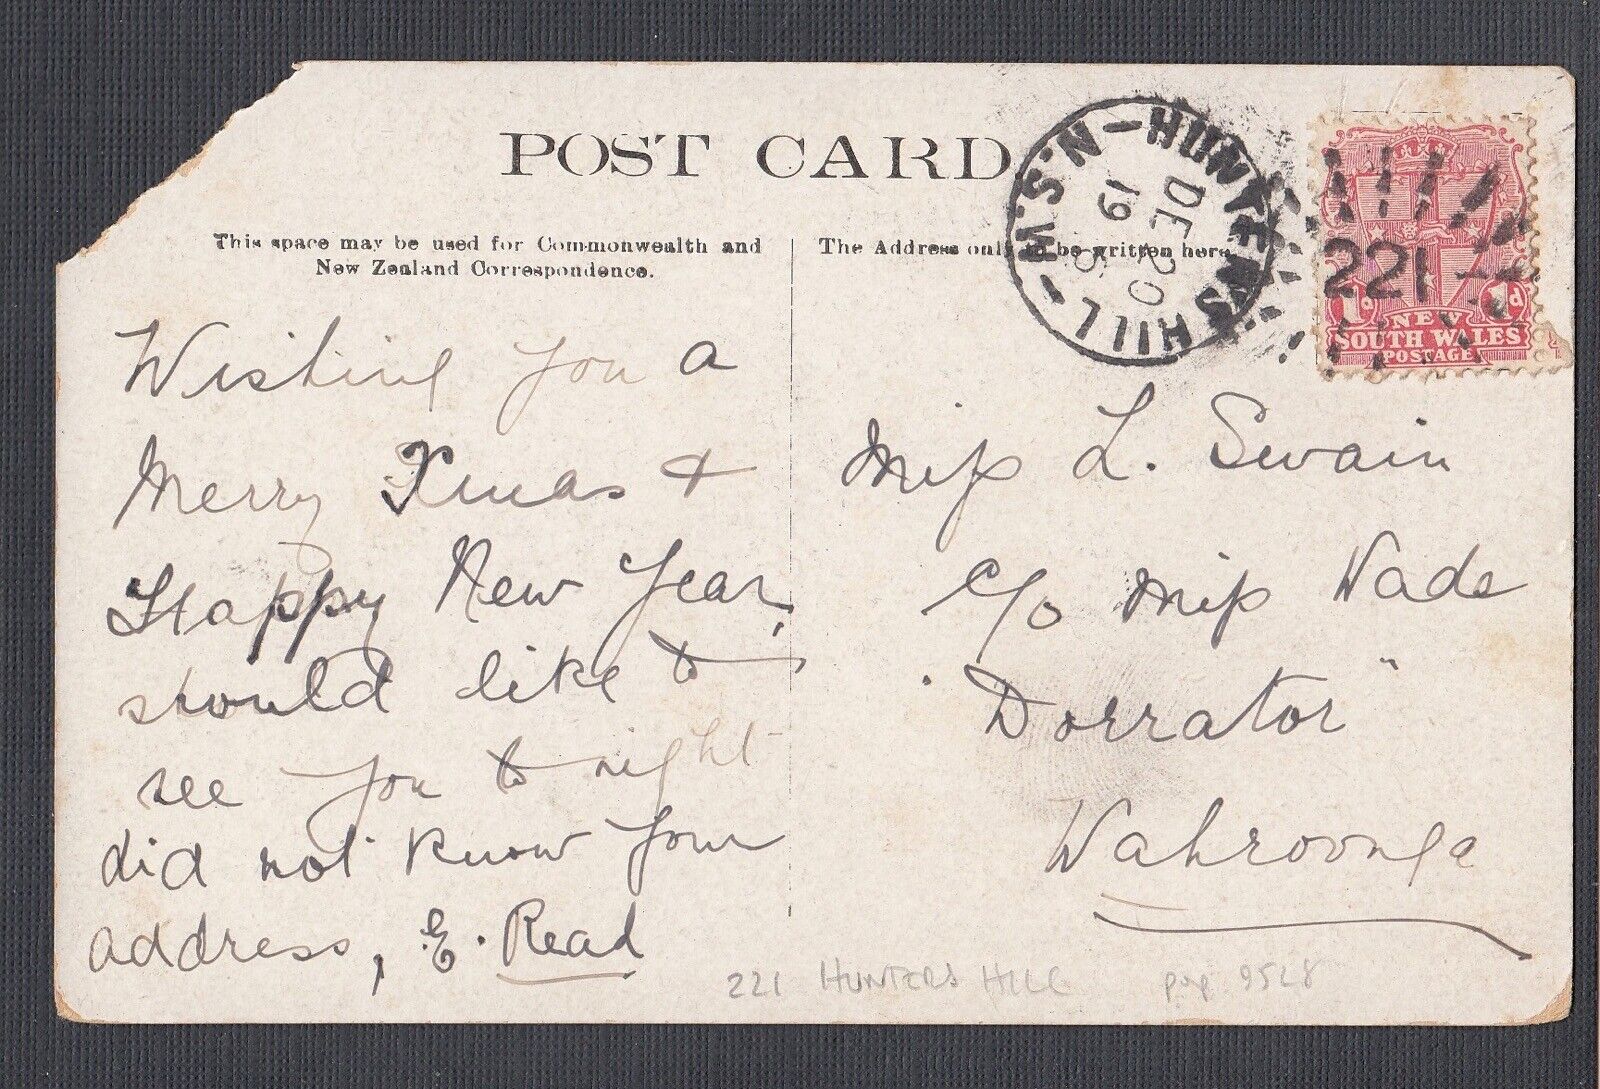 POST CARD
This space may be used for Commonwealth and
New Zealand Correspondence.
The Address only to be written here.
HUNTERS HILL - N.S.W -
DE 20
19
221
1d
1d
NEW
SOUTH WALES
POSTAGE
Wishing you a
Merry Xmas &
Happy New Year,
should like to
see you to night
did not know your
address, E. Read
Miss L. Swain
c/o Miss Wade
"Dorrator"
Wahroonga
221 HUNTERS HILL